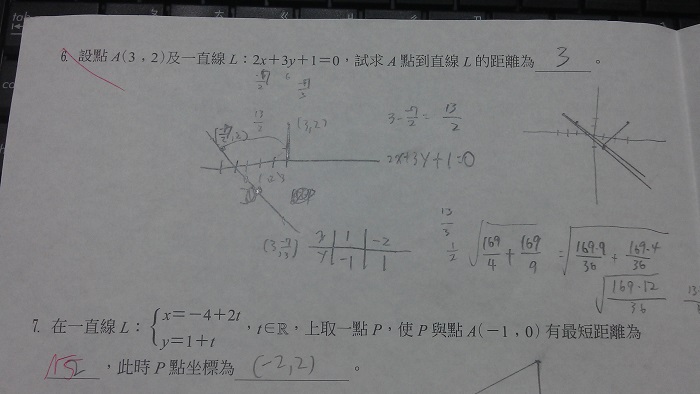 6. 設點 A(3,2)及一直線 L：2x+3y+1=0，試求 A 點到直線 L 的距離為 3 。
(3,2)
3-\frac{-7}{2}=\frac{13}{2}
2x+3y+1=0
x 1 -2
y -1 1
\sqrt{\frac{169}{4}+\frac{169}{9}} = \sqrt{\frac{169·9}{36}+\frac{169·4}{36}}
7. 在一直線 L：{x=-4+2t
y=1+t ，t∈ℝ，上取一點 P，使 P 與點 A(-1,0) 有最短距離為
√5 ，此時 P 點坐標為 (-2,2) 。